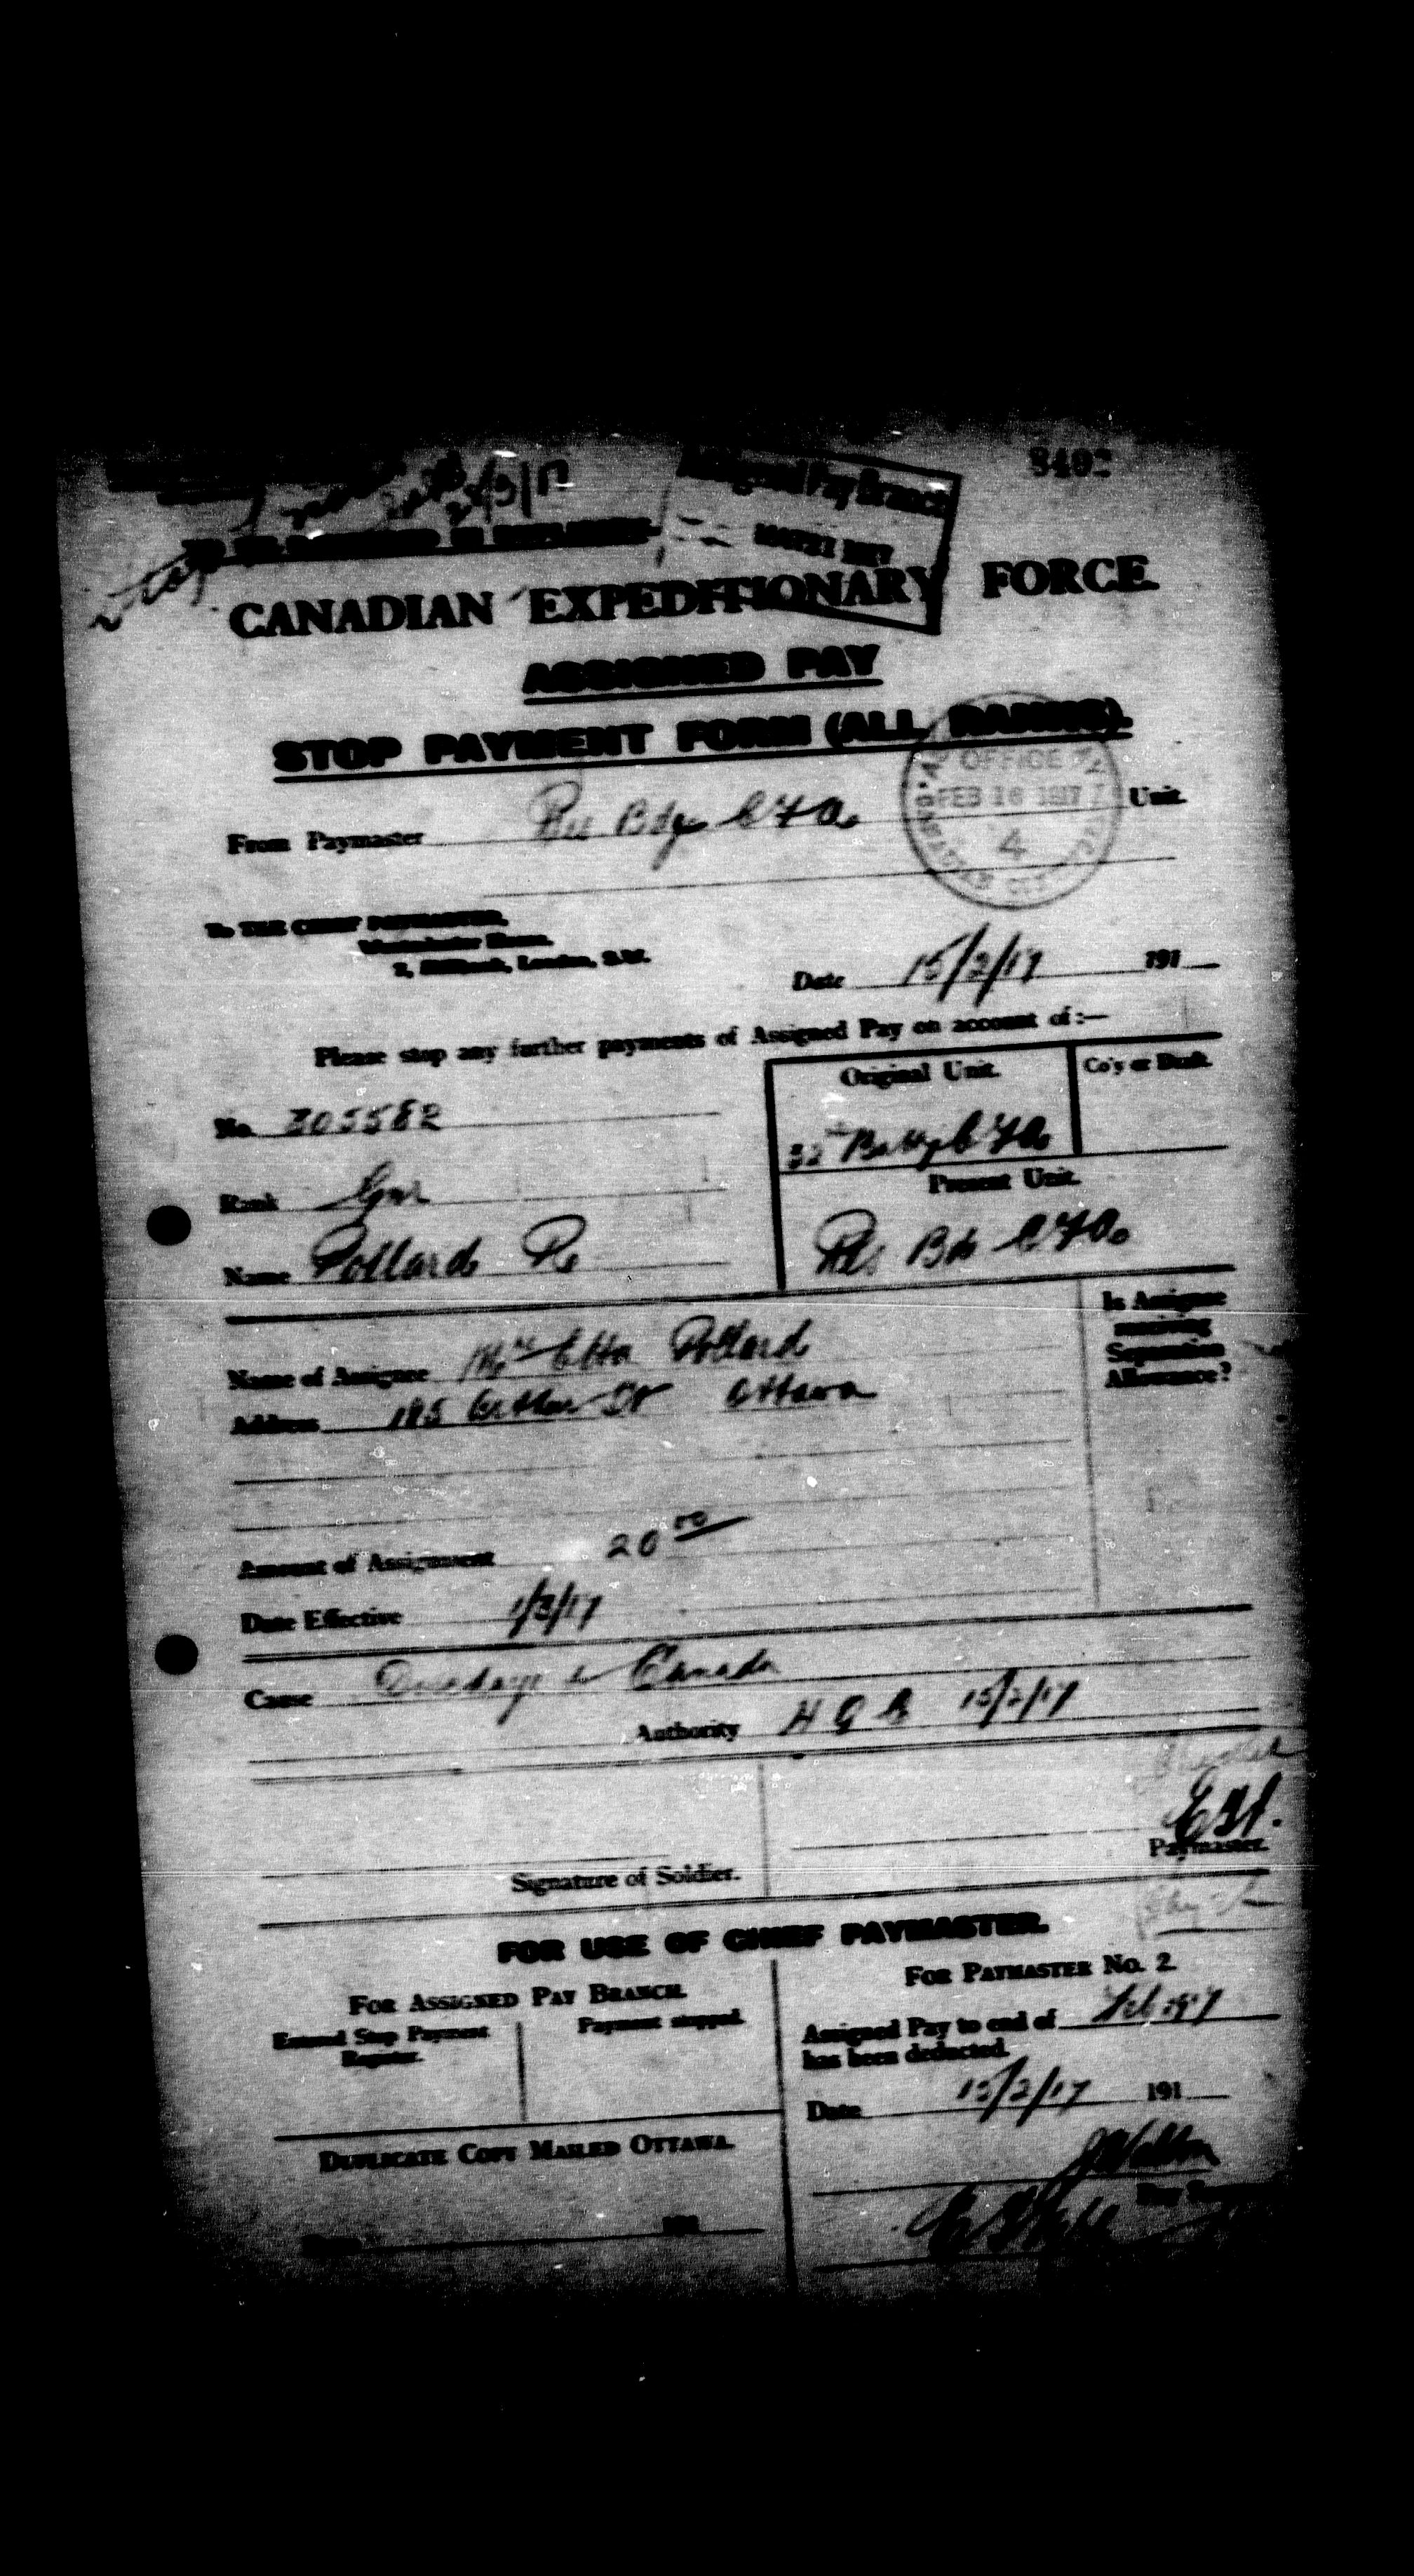 8402
2/3/17
Assigned Pay Branch
CANADIAN EXPEDITIONARY FORCE.
ASSIGNED PAY
STOP PAYMENT FORM (ALL RANKS).
OFFICE
FEB 16 1917
4
From Paymaster Res Bde C F A. Unit.
To THE CHIEF PAYMASTER,
Westminster House,
7, Millbank, London, S.W.
Date 15/2/17 191
Please stop any further payments of Assigned Pay on account of:—
Original Unit. Co'y or Draft.
No. 305582
32nd Batty C F A.
Rank Gnr
Present Unit.
Name Pollard R.
Res Bde C F A.
Is Assignee
receiving
Separation
Allowance?
Name of Assignee Mrs Etta Pollard
Address 185 Arthur St Ottawa
Amount of Assignment 20 00
Date Effective 1/3/17
Cause in Canada
Authority 15/2/17
Paymaster.
Signature of Soldier.
FOR USE OF CHIEF PAYMASTER.
FOR ASSIGNED PAY BRANCH.
FOR PAYMASTER NO. 2.
Entered Stop Payment
Register.
Payment stopped.
Assigned Pay to end of Feb 1917
has been deducted.
Date 15/2/17 191
DUPLICATE COPY MAILED OTTAWA.
191